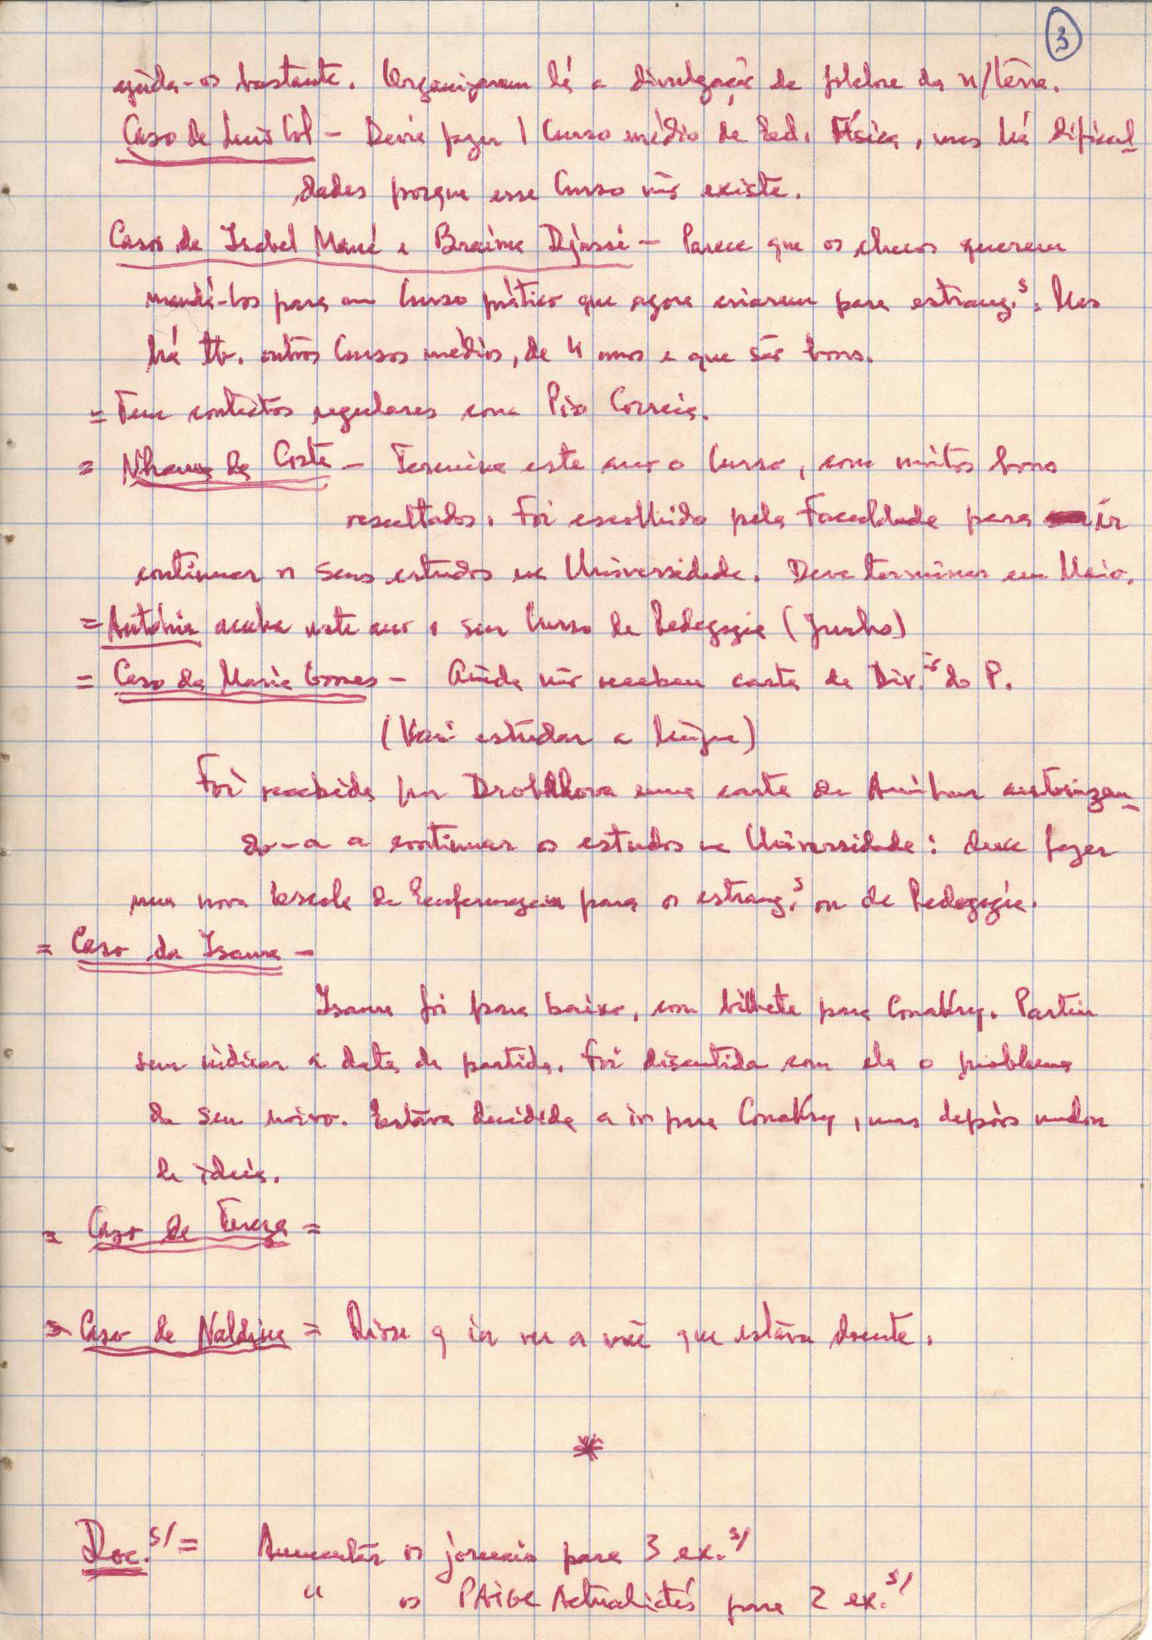 3
ajuda-os bastante. Organizaram lá a divulgação do folclore da n/terra.
Caso de Luis Col - Devia fazer 1 Curso médio de Ed. Física, mas há dificul-
dades porque esse Curso não existe.
Caso de Isabel Mané e Braima Djassi - Parece que os checos querem
mandá-los para um Curso prático que agora criaram para estrang.s. Mas
há tb. outros Cursos médios, de 4 anos e que são bons.
= Tem contactos regulares com Correia.
= Nhama da Costa - Termina este ano o Curso, com muitos bons
resultados. Foi escolhido pela Faculdade para ir
continuar os seus estudos na Universidade. Deve terminar em Maio.
= Antónia acaba este ano o seu Curso de Pedagogia (Junho)
= Caso da Maria Gomes - Ainda não recebeu carta da Dir.ão do P.
(Vai estudar a língua)
Foi recebida por uma carta de autorizan-
do-a a continuar os estudos na Universidade: deve fazer
uma nova Escola de Enfermagem para os estrang.s ou de Pedagogia.
= Caso da Isaura -
Isaura foi para baixo, com bilhete para Conakry. Partiu
sem indicar a data da partida. Foi discutida com ela o problema
do seu noivo. Estava decidida a ir para Conakry, mas depois mudou
de ideia.
= Caso de Tereza =
= Caso de Naldina = Disse q ia ver a mãe que estava doente.
*
Doc.s/ = Aumentar os jornais para 3 ex.s/
" os PAIGC Actualités para 2 ex.s/